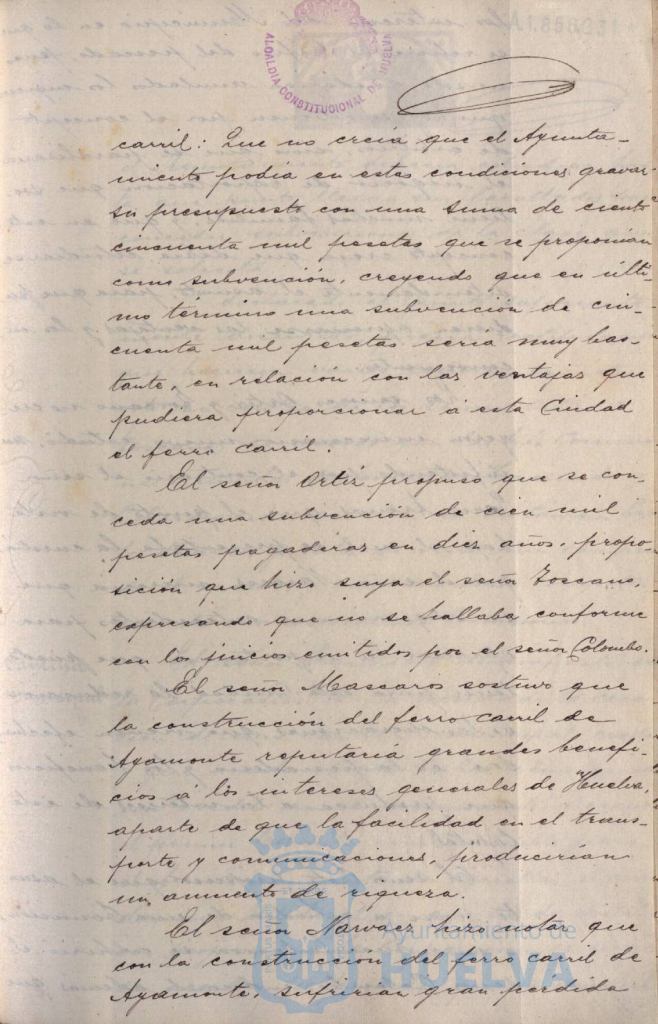 ALCALDIA CONSTITUCIONAL DE HUELVA
carril: Que no creia que el Ayunta-
miento podia en estas condiciones gravar
su presupuesto con una suma de ciento
cincuenta mil pesetas que se proponian
como subvención, creyendo que en últi-
mo término una subvención de cin-
cuenta mil pesetas seria muy bas-
tante, en relación con las ventajas que
pudiera proporcionar á esta Ciudad
el ferro carril.
El señor Ortiz propuso que se con-
ceda una subvención de cien mil
pesetas pagaderas en diez años, propo-
sición que hizo suya el señor Toscano,
expresando que no se hallaba conforme
con los juicios emitidos por el señor Colombo.
El señor Mascarós sostuvo que
la construcción del ferro carril de
Ayamonte reputaria grandes benefi-
cios á los intereses generales de Huelva,
aparte de que la facilidad en el trans-
porte y comunicaciones, producirian
un aumento de riqueza.
El señor Narvaez hizo notar que
con la construcción del ferro carril de
Ayamonte, sufririan gran pérdida
Ayuntamiento de
HUELVA